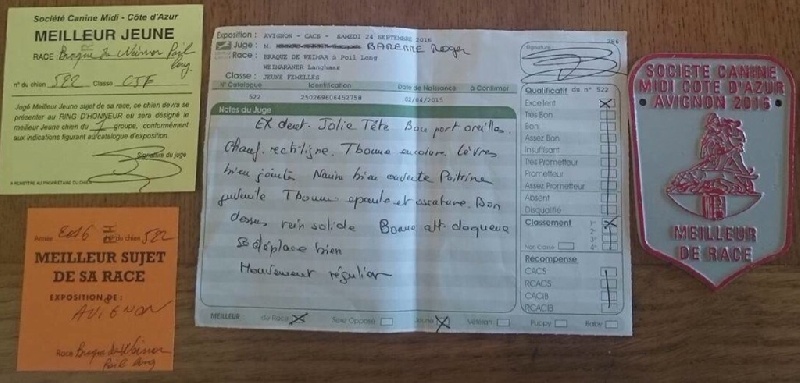 Société Canine Midi - Côte d'Azur
MEILLEUR JEUNE
RACE Braque de Weimar Poil
Long
n° du chien 522 Classe CJF
Jugé Meilleur Jeune sujet de sa race, ce chien devra se
présenter au RING D'HONNEUR où sera désigné le
meilleur Jeune chien du 7 groupe, conformément
aux indications figurant au catalogue d'exposition.
Signature du juge
Année 2016 n° du chien 522
MEILLEUR SUJET
DE SA RACE
EXPOSITION DE :
AVIGNON
Race Braque de Weimar
Poil Long
Exposition : AVIGNON - CACB - SAMEDI 24 SEPTEMBRE 2016
Juge : M. BARENNE Roger
Race : BRAQUE DE WEIMAR à Poil Long
WEIMARANER Langhaar
Classe : JEUNE FEMELLES
N° Catalogue Identification Date de Naissance à Confirmer
522
Notes du Juge
Ex dent. Jolie Tête Bon port oreilles
Chanf. rectiligne. T bonne encolure lèvres
bien jointés Poitrine
T bonne épaule et ossature. Bon
dessus rein solide Bonne att. de queue
Se déplace bien
Mouvement régulier
MEILLEUR de Race Sexe Opposé Jeune Vétéran Puppy Baby
Signature
Qualificatif du n° 522
Excellent
Très Bon
Bon
Assez Bon
Insuffisant
Très Prometteur
Prometteur
Assez Prometteur
Absent
Disqualifié
Classement 1°
2°
3°
Non Classé 4°
Récompense
CACS
RCACS
CACIB
RCACIB
SOCIETE CANINE
MIDI COTE D'AZUR
AVIGNON 2016
MEILLEUR
DE RACE